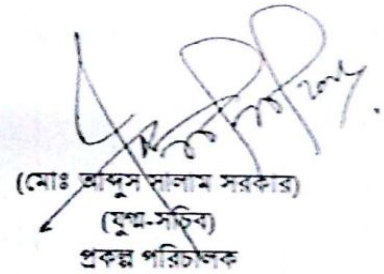 ((মোঃ আব্দুস সালাম সরকার)
(যুগ্ম-সচিব)
প্রকল্প পরিচালক